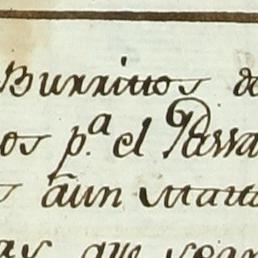 Burrittos de
os p.ª el Parra
s aun Matt
as que sean